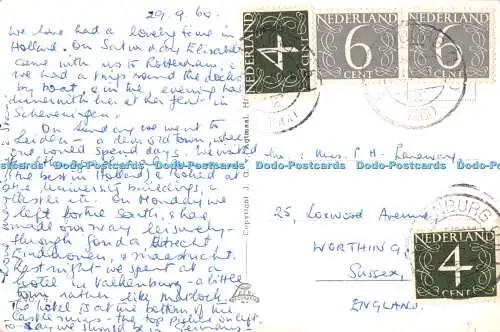 29.9.60.
We have had a lovely time in
Holland. On Saturday Elisabeth
came with us to Rotterdam, &
we had a trip round the docks
by boat, & in the evening had
dinner with her at her flat in
Scheveningen.
On Sunday we went to
Leiden - a dear old town, where
one could spend days. We visited
(the best in Holland) & looked at
the University buildings, &
Castle etc. On Monday we
left for the South, & have
made our way leisurely
through Gouda, Utrecht
Eindhoven, & Maastricht.
Last night we spent at a
hotel in Valkenburg - a little
town rather like Matlock.
The hotel is at the bottom of the
Castle ruins - the top picture on left.
Today we should be in Germany.
Copyright J.
NEDERLAND
4
CENT
NEDERLAND
6
CENT
NEDERLAND
6
CENT
Mr & Mrs. P. H.
25, Loxwood Avenue,
WORTHING,
SUSSEX,
ENGLAND.
NEDERLAND
4
CENT
Dodo-Postcards Dodo-Postcards Dodo-Postcards Dodo-Postcards Dodo-Postcards